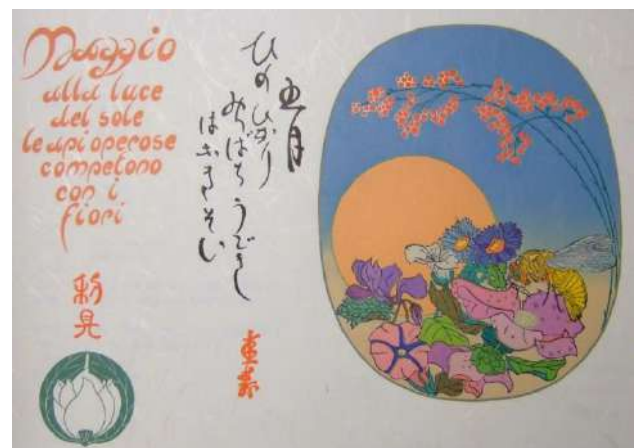 Maggio
alla luce
del sole
le api operose
competono
con i
fiori
五月
ひの ひかり
みつばち うごきし
はなきそい
彩晃